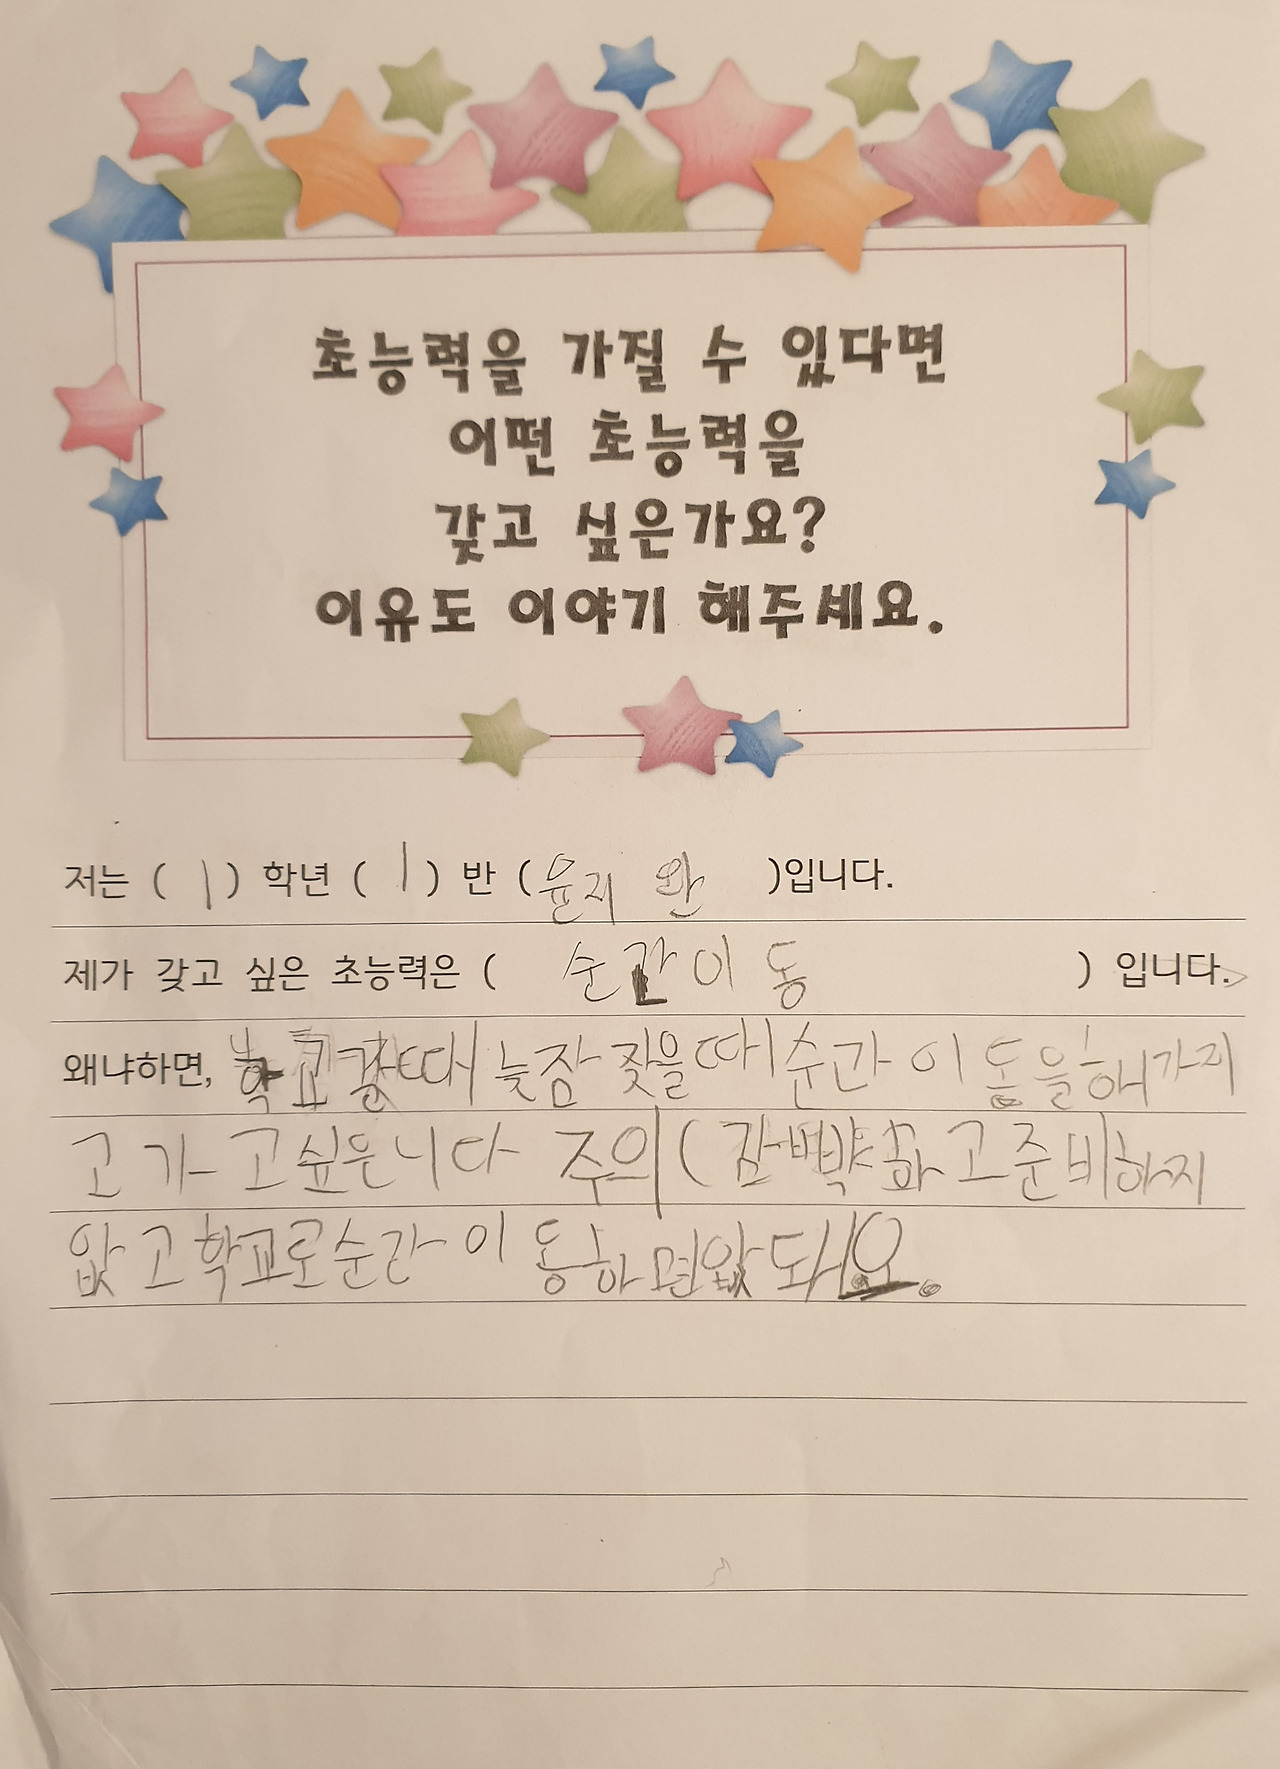 초능력을 가질 수 있다면
어떤 초능력을
갖고 싶은가요?
이유도 이야기 해주세요.
저는 ( 1 ) 학년 ( 1 ) 반 ( 윤지 완 )입니다.
제가 갖고 싶은 초능력은 ( 순간이동 ) 입니다.
왜냐하면, 학교갈때 늦잠 잦을때 순간 이동을해가지
고 가고싶은니다 주의( 깜빡하고준비하지
않고학교로순간이동하면않돼요.